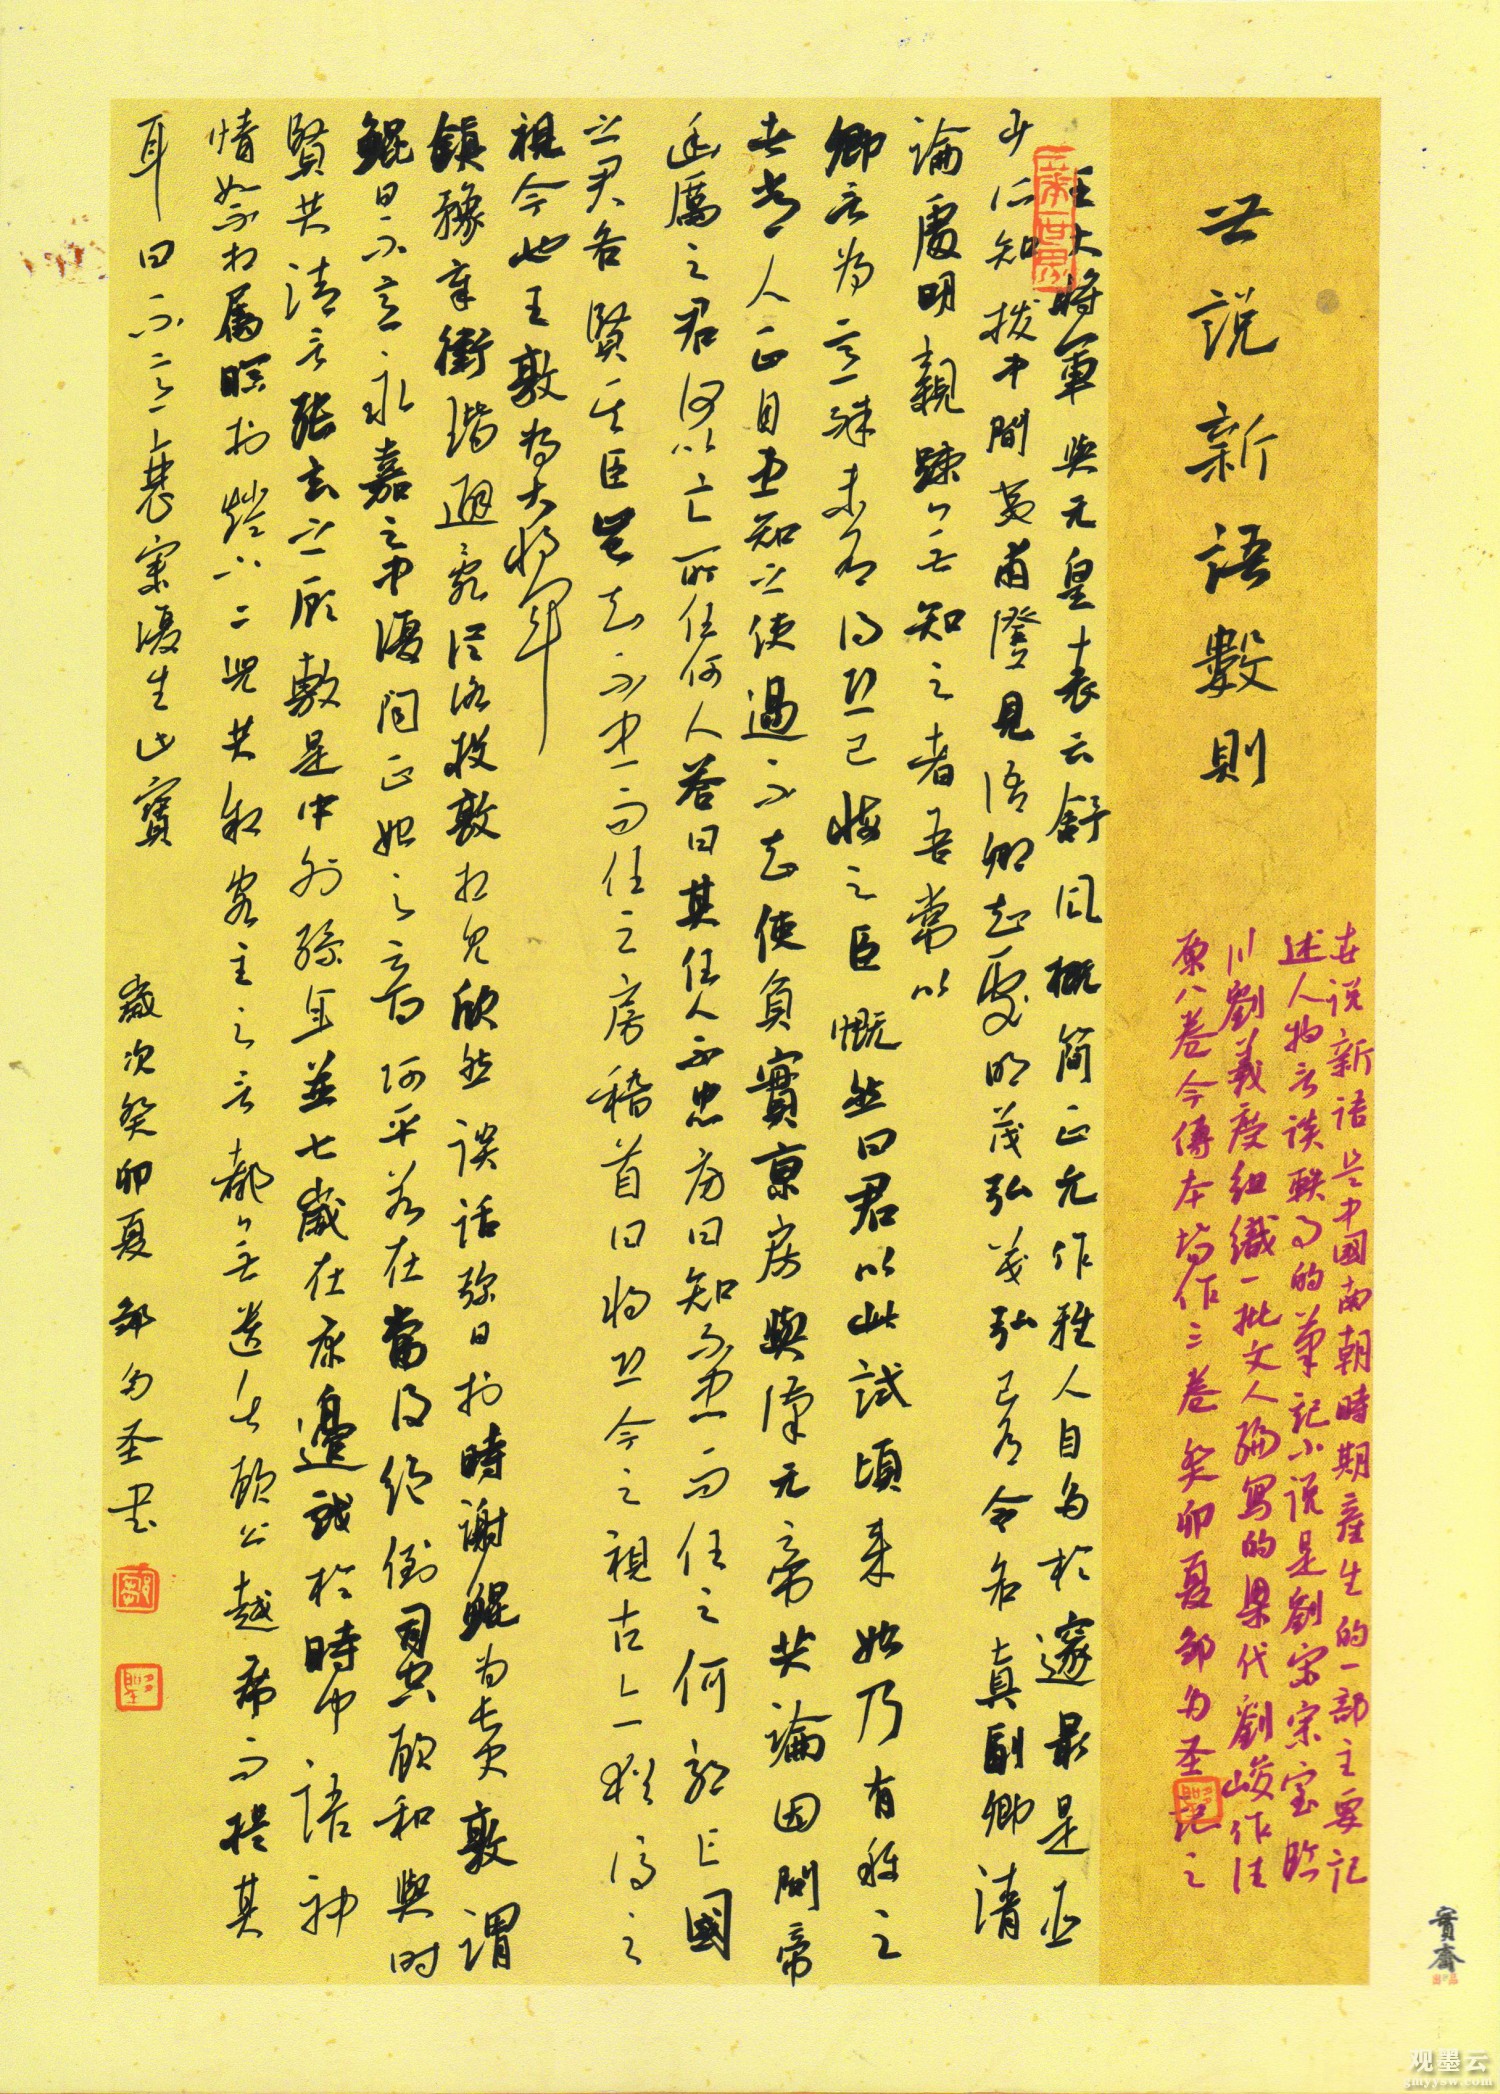 世說新語數則
世说新语是中國南朝時期產生的一部主要記
述人物言谈軼事的筆記小说是劉宋宗室臨
川劉義慶组織一批文人編寫的梁代劉峻作注
原八卷今傳本皆作三卷 癸卯夏邹为圣记之
王大將軍與元皇表云舒風概簡正允作雅人自多於邃最是臣
少所知拔中間夷甫澄見語卿知處明茂弘茂弘已有令名真副卿清
論處明親疎無知之者吾常以
卿言為意殊未有得恐已悔之臣慨然曰君以此試頃来始乃有稱之
者言常人正自患知之使過不知使負實京房與漢元帝共論因問帝
幽厲之君何以亡所任何人答曰其任人不忠房曰知不忠而任之何邪曰亡國
之君各賢其臣豈知不忠而任之房稽首曰將恐今之視古亦猶後之
視今也王敦為大將軍
鎮豫章衛玠避亂從洛投敦相見欣然談話彌日於時謝鯤為長史敦謂
鯤曰不意永嘉之中復聞正始之音阿平若在當復絕倒司空顧和與时
賢共清言張玄之顧敷是中外孫年並七歲在床邊戲於時聞語神
情如不相屬瞑於燈下二兒共叙客主之言都無遺失顧公越席而提其
耳曰不意衰宗復生此寶 歲次癸卯夏邹为圣书
實齋
观墨云
gmyysw.com